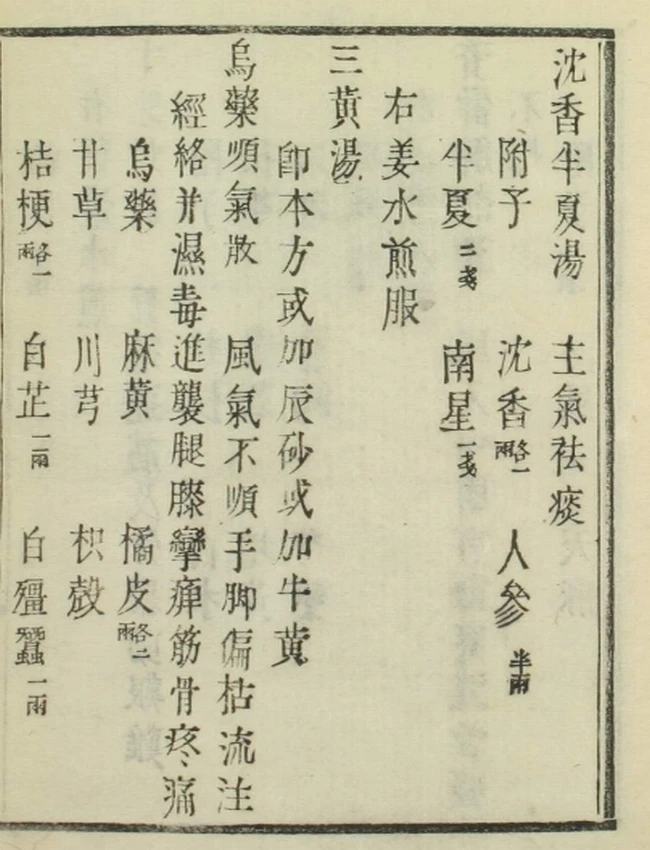 沈香半夏湯　主氣祛痰
附子　沈香各一兩　人參半兩
半夏二戔　南星一戔
右姜水煎服
三黃湯
卽本方或加辰砂或加牛黃
烏藥順氣散　風氣不順手脚偏枯流注
經絡并濕毒進襲腿膝攣痺筋骨疼痛
烏藥　麻黃　橘皮各二兩
甘草　川芎　枳殼
桔梗各一兩　白芷一兩　白殭蠶一兩